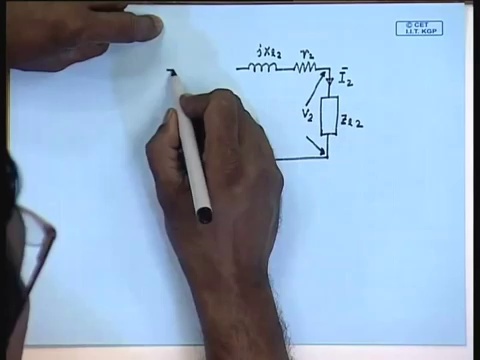 © CET
I.I.T. KGP
jxl2 r2
I̅2
V2
Zl2